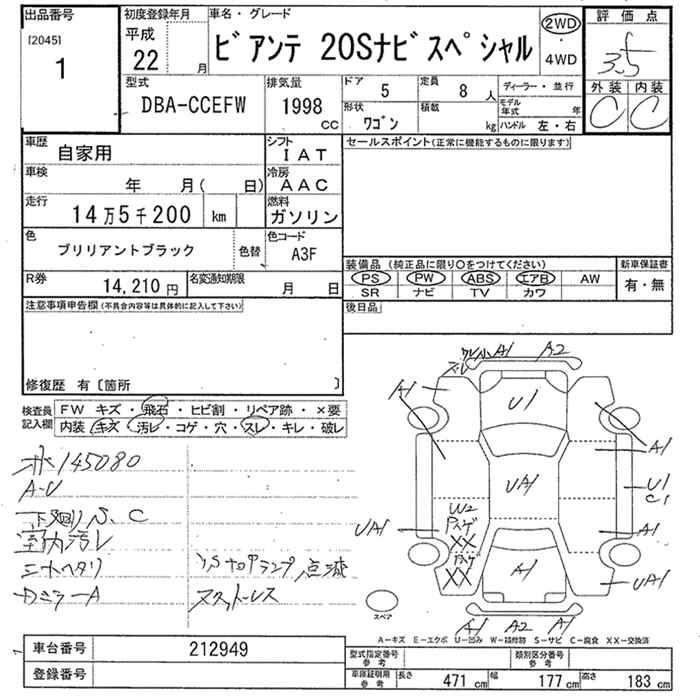 出品番号
[2045]
1
初度登録年月
平成
22 月
車名・グレード
ビアンテ 20Sナビスペシャル
2WD
・
4WD
評価点
3.5
外装 内装
C C
型式
DBA-CCEFW
排気量
1998
CC
ドア 5
定員 8 人
形状 ワゴン
積載 kg
ディーラー・並行
モデル年式 年
ハンドル 左・右
車歴 自家用
シフト IAT
車検 年 月( 日)
冷房 AAC
走行 14万5千200 km
燃料 ガソリン
色 ブリリアントブラック
色替
色コード A3F
R券 14,210 円
名変通知期限 月 日
セールスポイント(正常に機能するものに限ります)
装備品(純正品に限り○をつけてください)
PS PW ABS エアB AW
SR ナビ TV カワ
新車保証書
有・無
後日品
注意事項申告欄(不具合内容等は具体的に記入して下さい)
修復歴 有〔箇所 〕
検査員記入欄
FW キズ・飛石・ヒビ割・リペア跡・×要
内装 キズ・汚レ・コゲ・穴・スレ・キレ・破レ
145080
A-U
下廻りS、C
室内汚レ
シートヘタリ
点滅
A1 A2
A1
U1
A1
UA1
U1
C1
W2
XX
XX
UA1
A1
A1
UA1
A1 A2 A1
スペア
A-キズ E-エクボ U-凹み W-補修跡 S-サビ C-腐食 XX-交換済
車台番号 212949
登録番号
型式指定番号 参考
類別区分番号 参考
車庫証明用 参考
長さ 471 cm
幅 177 cm
高さ 183 cm